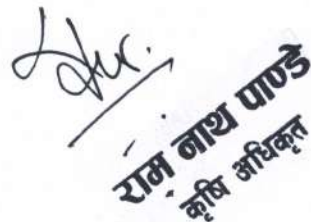 राम नाथ पाण्डे
कृषि अधिकृत